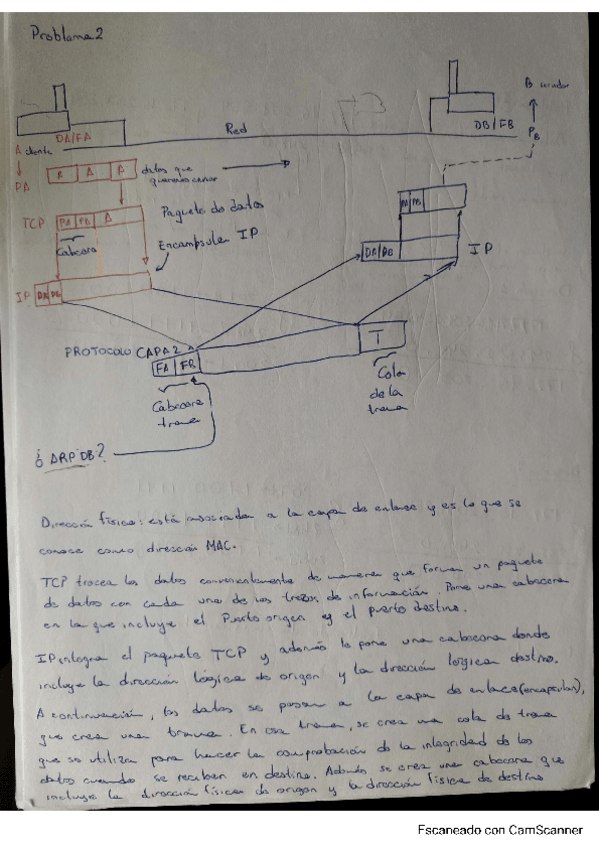 Problema 2
B servidor
DA/FA
Red
DB/FB
PB
A cliente
PA
A A A
datos que
queremos enviar
TCP
PA PB A
Paquete de datos
Cabecera
Encampsular IP
IP DA DB
PA PB
DA DB
IP
PROTOCOLO CAPA 2
FA FB
T
Cabecera
trama
Cola
de la
trama
¿ARP DB?
Dirección física: está asociada a la capa de enlace y es lo que se
conoce como dirección MAC.
TCP trocea los datos convenientemente de manera que forman un paquete
de datos con cada uno de los trozos de información. Pone una cabecera
en la que incluye el Puerto origen y el puerto destino.
IP integra el paquete TCP y además le pone una cabecera donde
incluye la dirección lógica de origen y la dirección lógica destino.
A continuación, los datos se pasan a la capa de enlace (encapsulan),
que crea una trama. En esa trama, se crea una cola de trama
que se utiliza para hacer la comprobación de la integridad de los
datos cuando se reciben en destino. Además se crea una cabecera que
incluye la dirección física de origen y la dirección física de destino
Escaneado con CamScanner